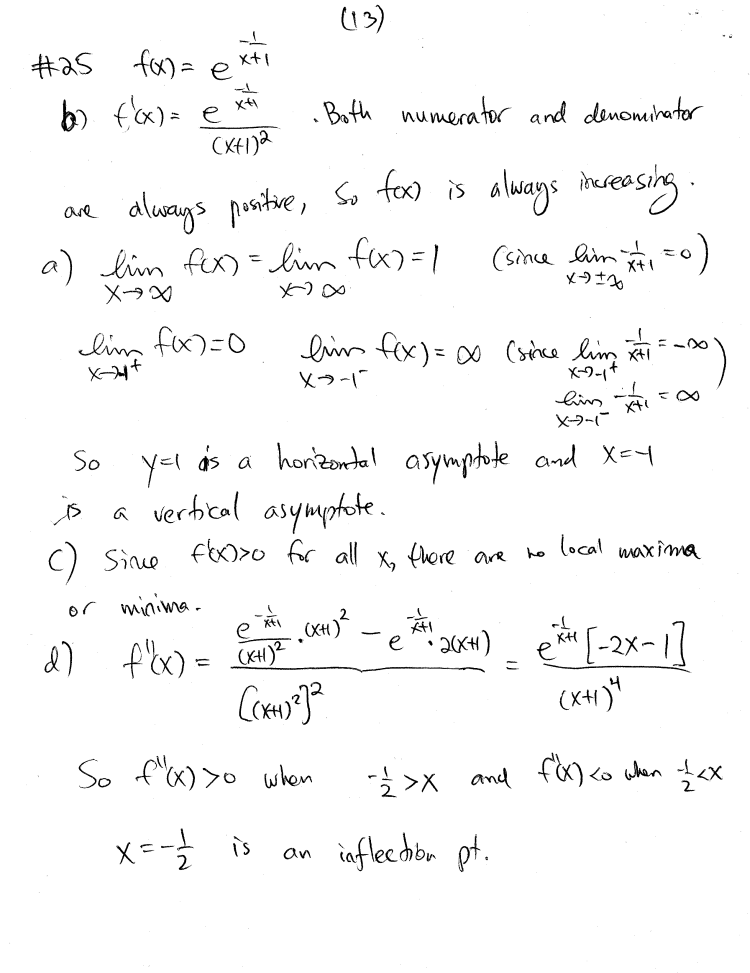 (13)
#25 f(x) = e^{-1/(x+1)}
b) f'(x) = e^{-1/(x+1)} / (x+1)^2 . Both numerator and denominator
are always positive, so f(x) is always increasing.
a) lim_{x→∞} f(x) = lim_{x→∞} f(x) = 1 (since lim_{x→±∞} -1/(x+1) = 0)
lim_{x→-1^+} f(x) = 0 lim_{x→-1^-} f(x) = ∞ (since lim_{x→-1^+} -1/(x+1) = -∞
lim_{x→-1^-} -1/(x+1) = ∞)
So y=1 is a horizontal asymptote and x=-1
is a vertical asymptote.
c) Since f'(x)>0 for all x, there are no local maxima
or minima.
d) f''(x) = [e^{-1/(x+1)}/(x+1)^2 · (x+1)^2 - e^{-1/(x+1)} · 2(x+1)] / [(x+1)^2]^2 = e^{-1/(x+1)} [-2x-1] / (x+1)^4
So f''(x) >0 when -1/2 > x and f''(x) <0 when -1/2 < x
x = -1/2 is an inflection pt.